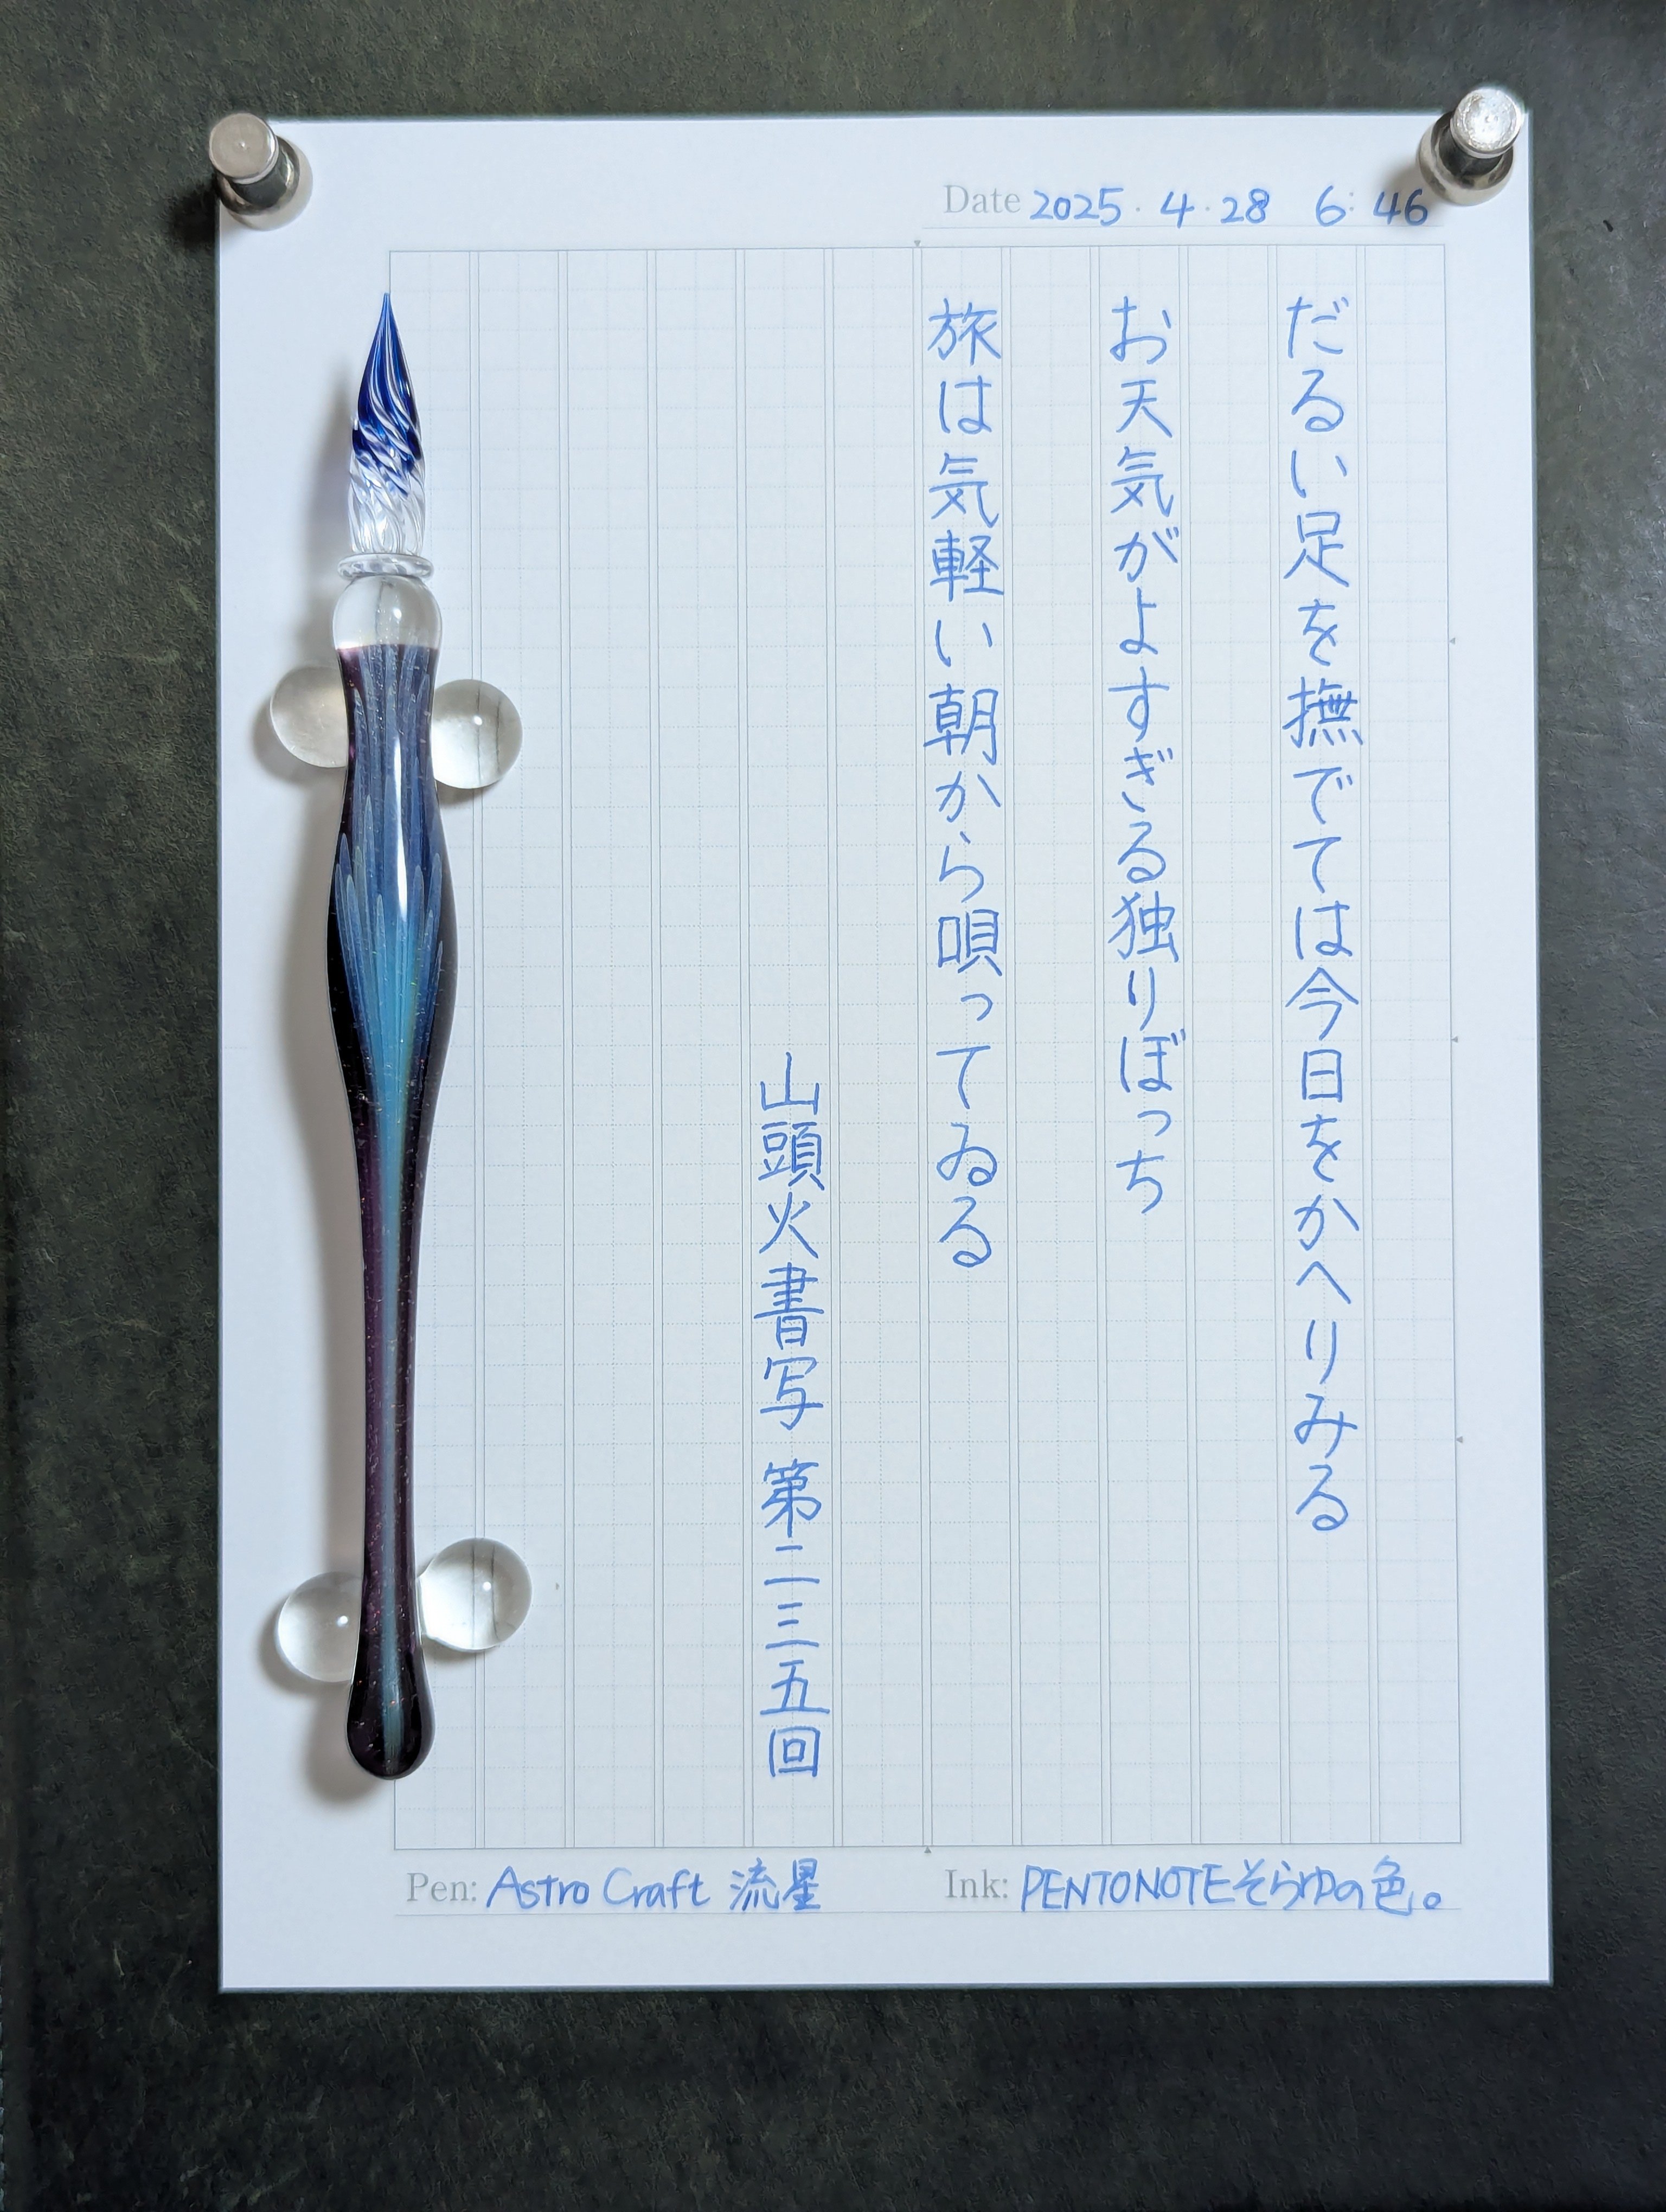 Date 2025・4・28 6:46
だるい足を撫でては今日をかへりみる
お天気がよすぎる独りぼっち
旅は気軽い朝から唄ってゐる
山頭火書写 第二三五回
Pen: Astro Craft 流星
Ink: PENTONOTEそらゆの色。